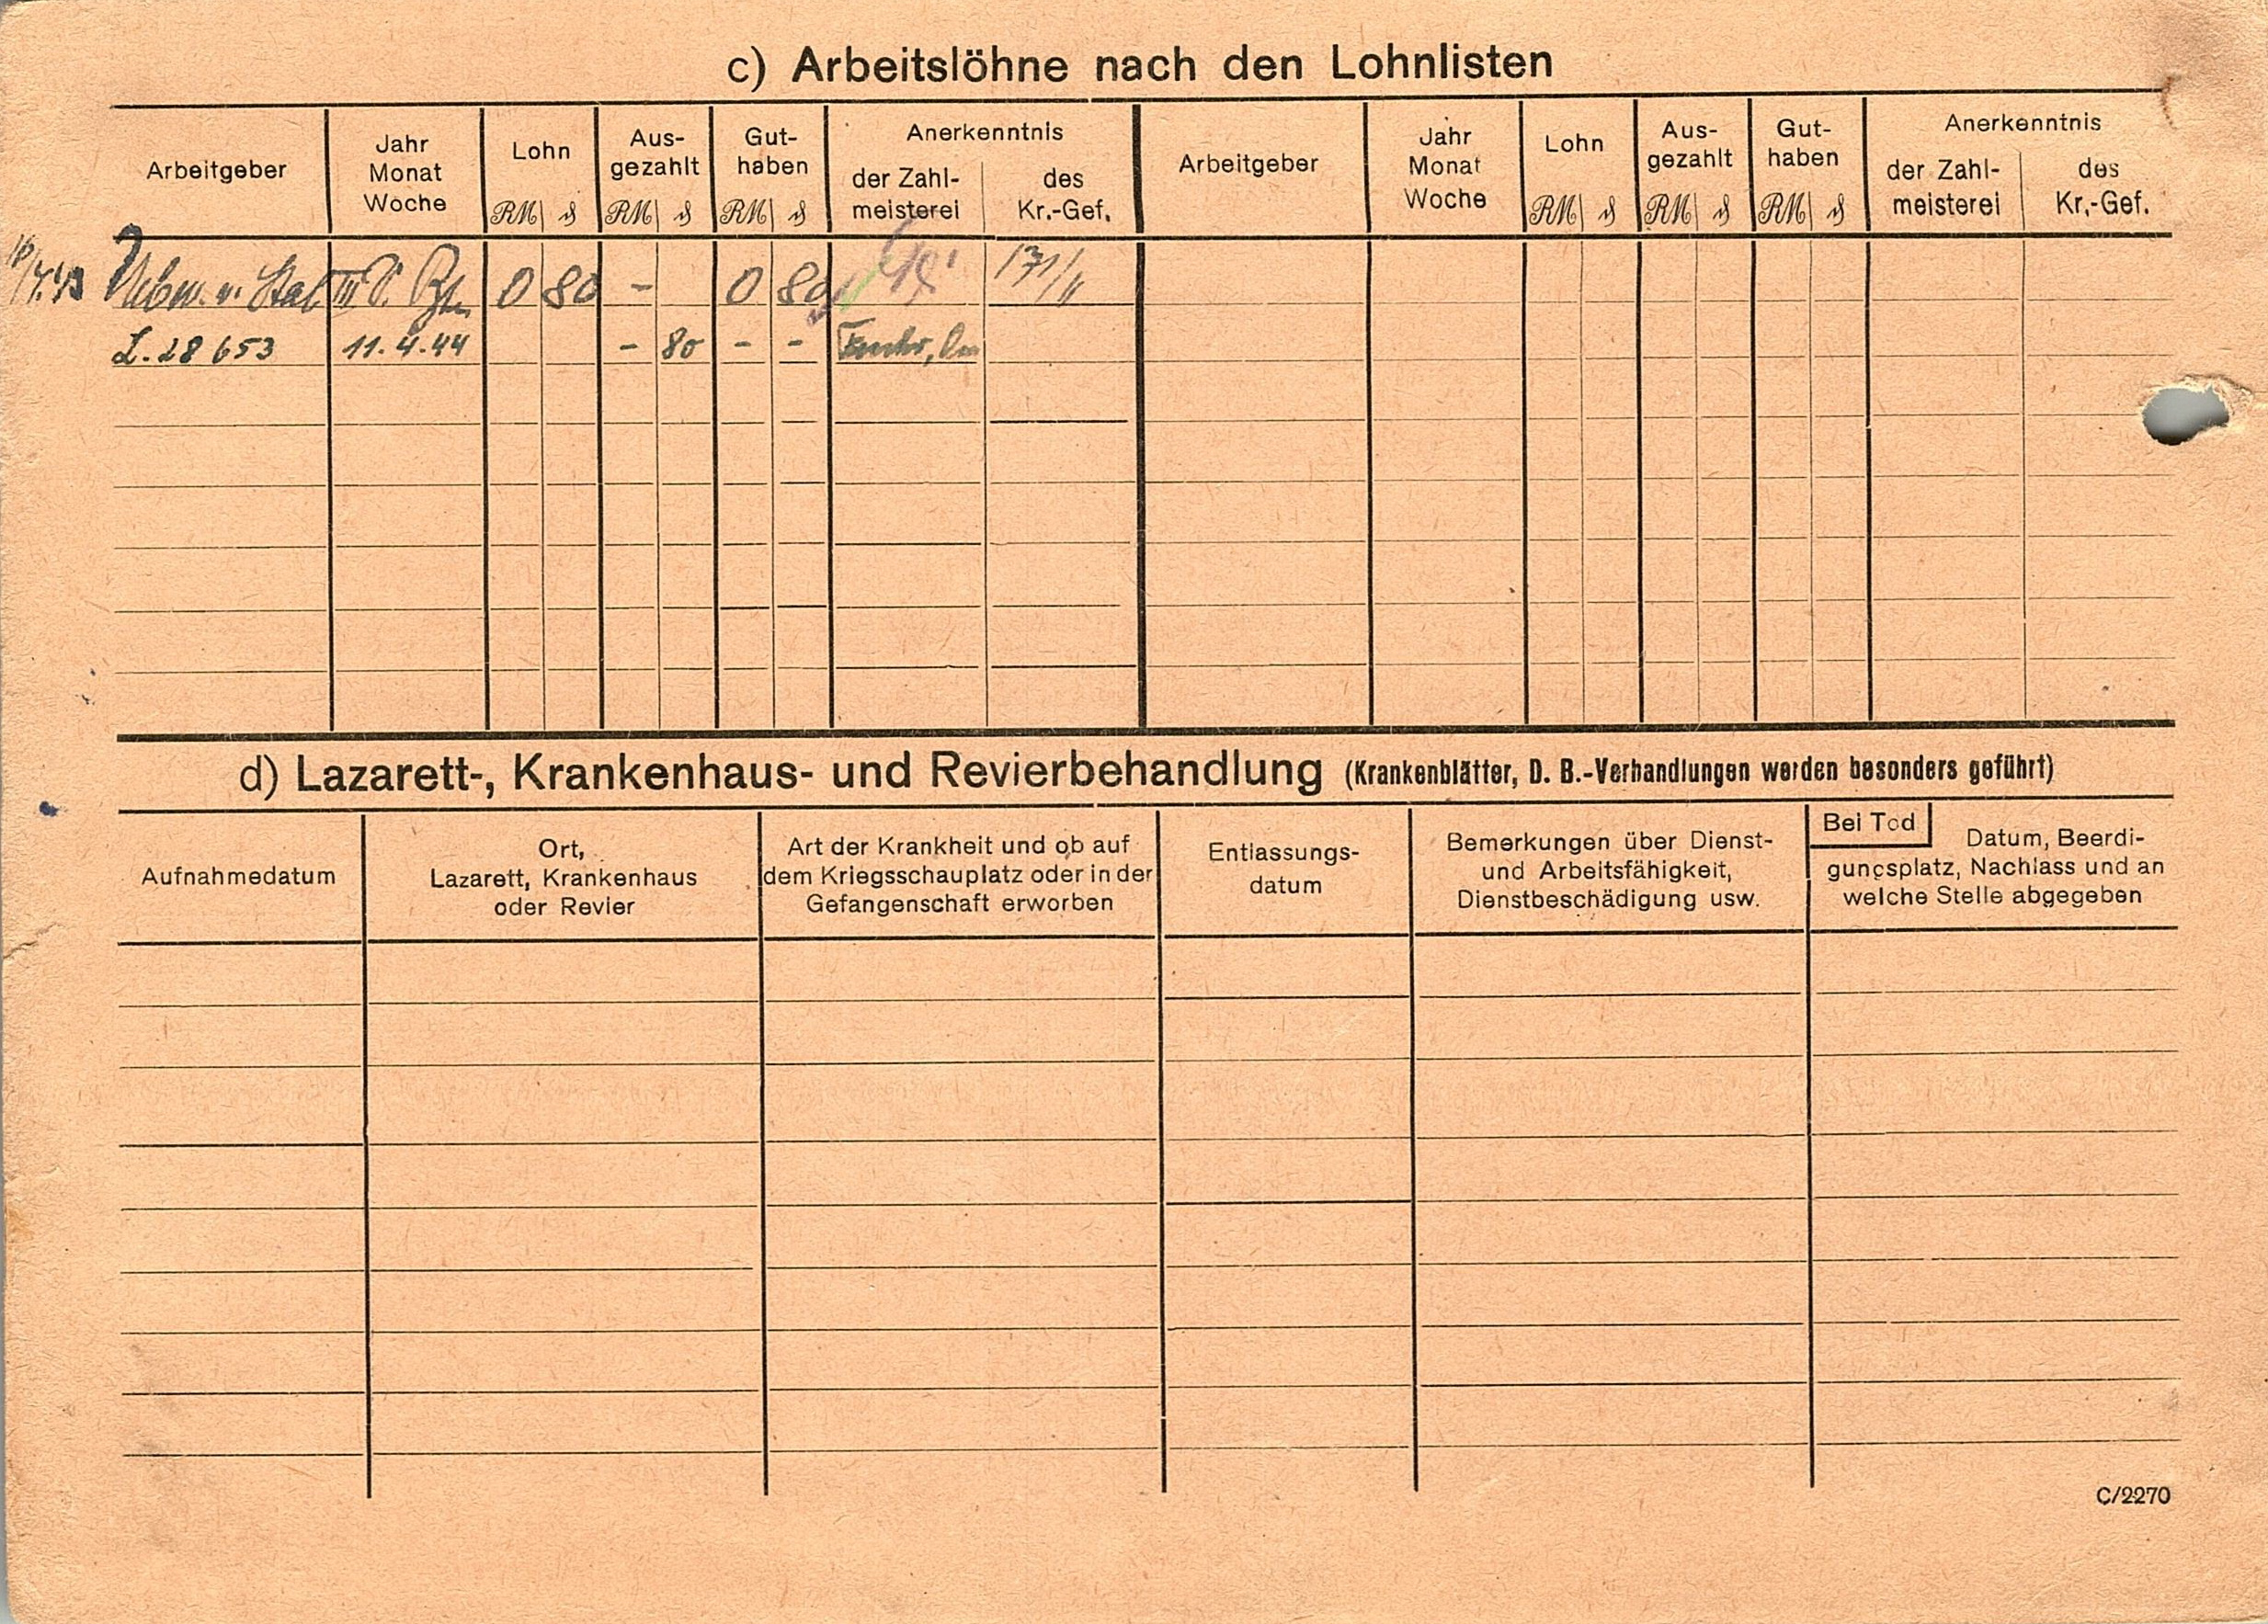 c) Arbeitslöhne nach den Lohnlisten
Arbeitgeber
Jahr
Monat
Woche
Lohn
RM ₰
Aus-
gezahlt
RM ₰
Gut-
haben
RM ₰
Anerkenntnis
der Zahl-
meisterei
des
Kr.-Gef.
Arbeitgeber
Jahr
Monat
Woche
Lohn
RM ₰
Aus-
gezahlt
RM ₰
Gut-
haben
RM ₰
Anerkenntnis
der Zahl-
meisterei
des
Kr.-Gef.
0 80 - 0 80
L. 28653 11.4.44 - 80 - -
d) Lazarett-, Krankenhaus- und Revierbehandlung (Krankenblätter, D. B.-Verhandlungen werden besonders geführt)
Aufnahmedatum
Ort,
Lazarett, Krankenhaus
oder Revier
Art der Krankheit und ob auf
dem Kriegsschauplatz oder in der
Gefangenschaft erworben
Entlassungs-
datum
Bemerkungen über Dienst-
und Arbeitsfähigkeit,
Dienstbeschädigung usw.
Bei Tod
Datum, Beerdi-
gungsplatz, Nachlass und an
welche Stelle abgegeben
C/2270